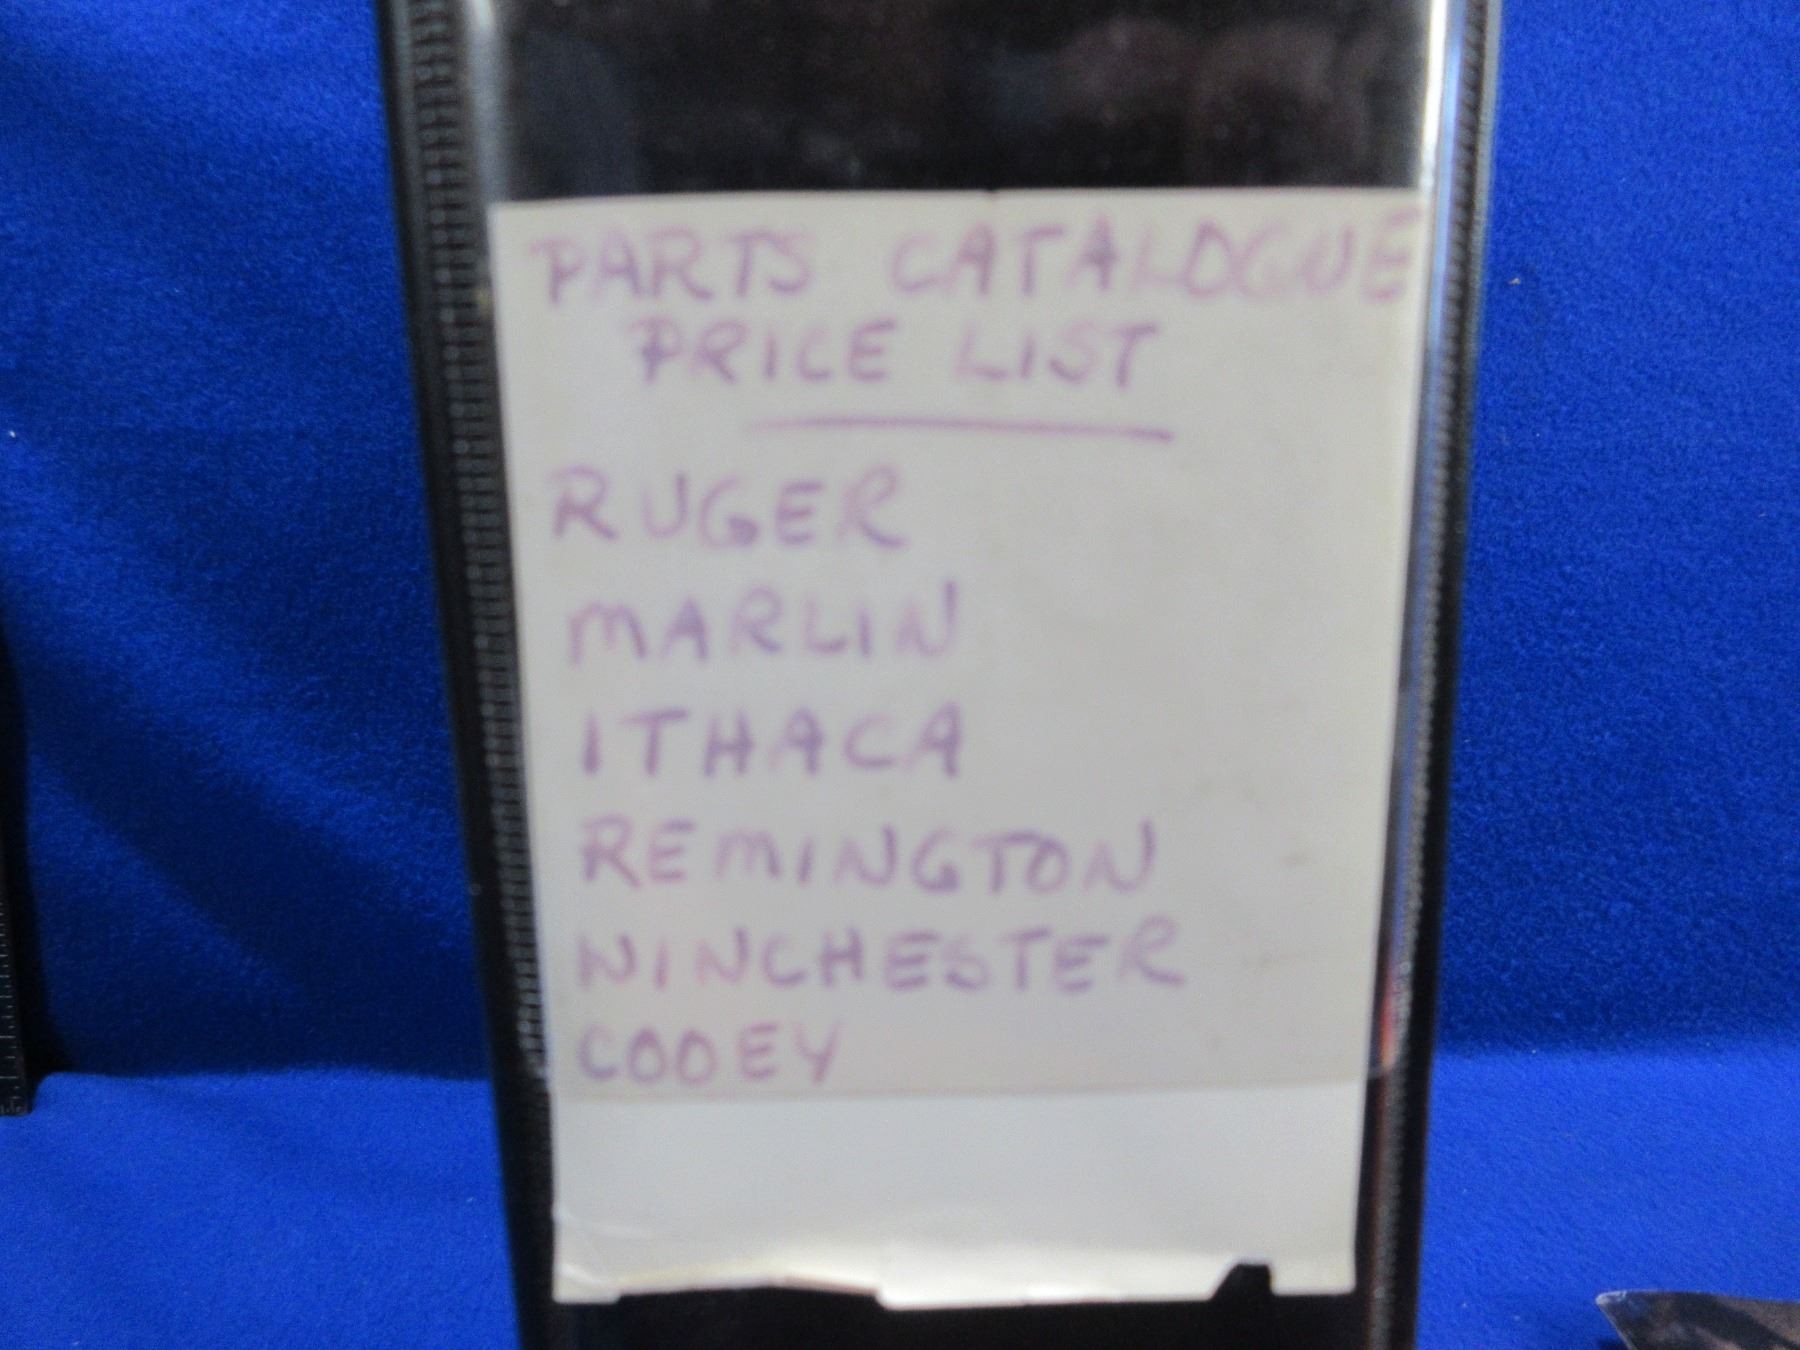 PARTS CATALOGUE
PRICE LIST
RUGER
MARLIN
ITHACA
REMINGTON
WINCHESTER
COOEY